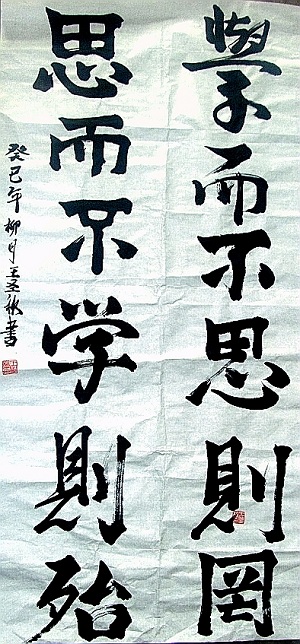 學而不思則罔
思而不学則殆
癸巳年柳月王丞秋書